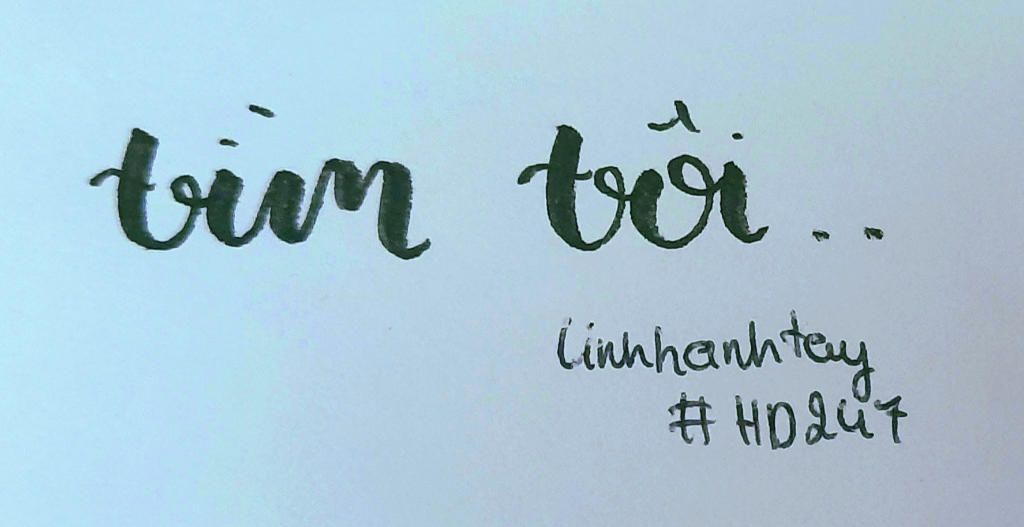 tìm tôi..
linhhanhtay
#HD247